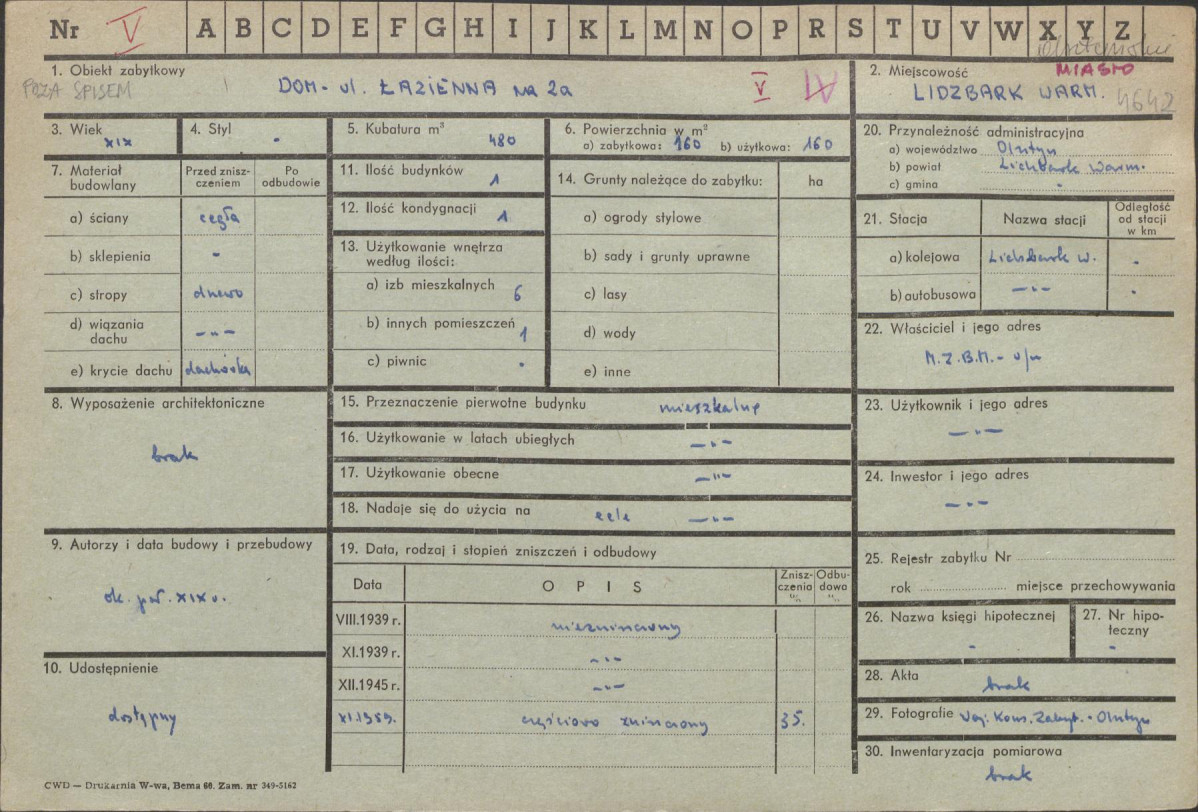 Nr V A B C D E F G H I J K L M N O P R S T U V W X Y Z
1. Obiekt zabytkowy
POZA SPISEM
DOM - ul. ŁAZIENNA na 2a V IV
2. Miejscowość MIASTO
LIDZBARK WARM. 4642
3. Wiek
XIX
4. Styl
-
5. Kubatura m³
480
6. Powierzchnia w m²
a) zabytkowa: 160 b) użytkowa: 160
7. Materiał budowlany
Przed zniszczeniem
Po odbudowie
a) ściany cegła
b) sklepienia -
c) stropy drewo
d) wiązania dachu -"-
e) krycie dachu dachówka
8. Wyposażenie architektoniczne
brak
9. Autorzy i data budowy i przebudowy
ok. poł. XIX w.
10. Udostępnienie
dostępny
11. Ilość budynków 1
12. Ilość kondygnacji 1
13. Użytkowanie wnętrza
według ilości:
a) izb mieszkalnych 6
b) innych pomieszczeń 1
c) piwnic -
14. Grunty należące do zabytku: ha
a) ogrody stylowe
b) sady i grunty uprawne
c) lasy
d) wody
e) inne
15. Przeznaczenie pierwotne budynku mieszkalne
16. Użytkowanie w latach ubiegłych -"-
17. Użytkowanie obecne -"-
18. Nadaje się do użycia na cele -"-
19. Data, rodzaj i stopień zniszczeń i odbudowy
Data OPIS Zniszczenia % Odbudowa %
VIII.1939 r. niezniszczony
XI.1939 r. -"-
XII.1945 r. -"-
XI.1959. częściowo zniszczony 35.
20. Przynależność administracyjna
a) województwo Olsztyn
b) powiat Lidzbark Warm.
c) gmina -
21. Stacja
Nazwa stacji
Odległość od stacji w km
a) kolejowa Lidzbark W. -
b) autobusowa -"- -
22. Właściciel i jego adres
M.Z.B.M. - w/m
23. Użytkownik i jego adres
-"-
24. Inwestor i jego adres
-"-
25. Rejestr zabytku Nr
rok miejsce przechowywania
26. Nazwa księgi hipotecznej
-
27. Nr hipoteczny
-
28. Akta
brak
29. Fotografie Woj. Kons. Zabyt. - Olsztyn
30. Inwentaryzacja pomiarowa
brak
CWD — Drukarnia W-wa, Bema 60. Zam. nr 349-5162